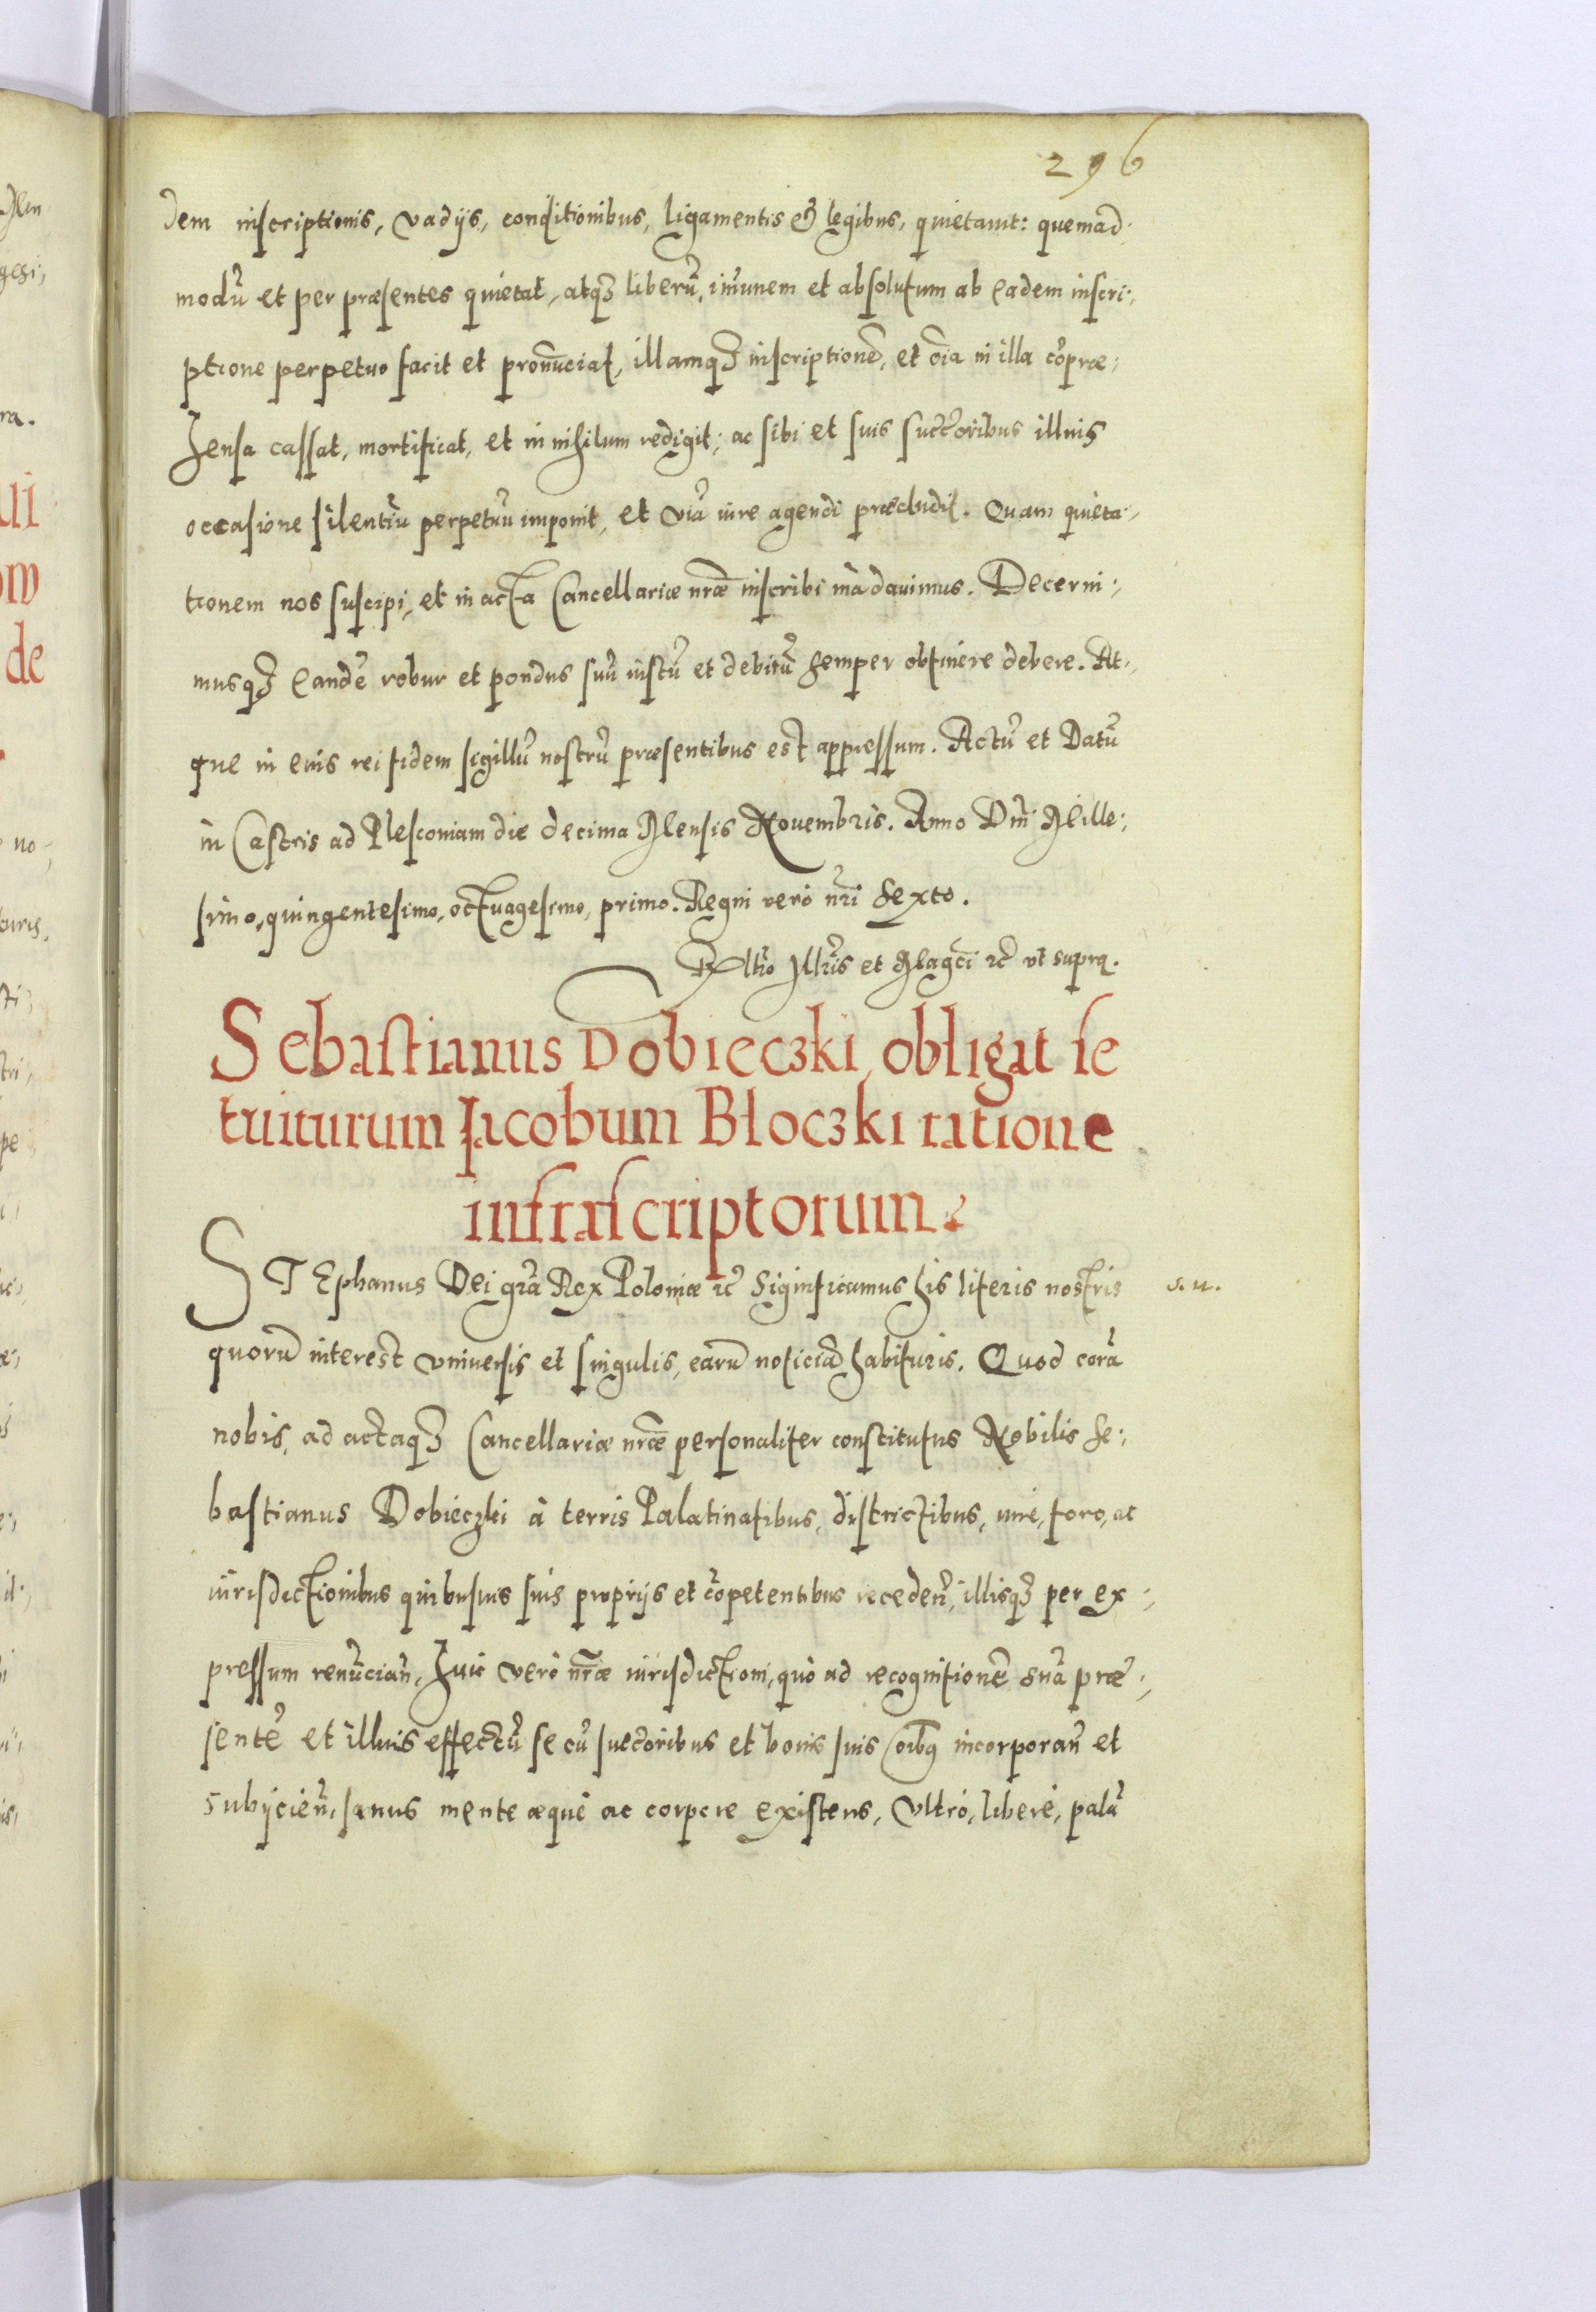 296
dem inscriptionis, vadijs, conditionibus, ligamentis & legibus, quietauit: quemad-
modũ et per præsentes quietat, atqꝫ liberũ, im̃unem et absolutum ab eadem inscri-
ptione perpetuo facit et pronũciat, illamqꝫ inscriptionẽ, et õia in illa cõpræ-
hensa cassat, mortificat, et in nihilum redigit; ac sibi et suis succ̃oribus illius
occasione silentiũ perpetuũ imponit, et viã iure agendi præcludit. Quam quieta-
tionem nos suscipi, et in acta Cancellariæ nr̃æ inscribi mãdauimus. Decerni-
musqꝫ eandẽ robur et pondus suũ iustũ et debitũ semper obtinere debere. At-
que in euis rei fidem sigillũ nostrũ præsentibus est appressum. Actũ et Datũ
in Castris ad Plesconiam die decima Mensis Nouembris. Anno Dñi Mille-
simo, quingentesimo, octuagesimo, primo. Regni vero nr̃i sexto.
Rel̃tio Illr̃is et Magc̃i ꝛc̃ vt supra.
Sebastianus Dobieczki, obligat se
tuiturum Jacobum Bloczki ratione
infrascriptorum.
STEphanus Dei gr̃a Rex Poloniæ ꝛc̃ Significamus his literis nostris
s. u.
quorũ interest vniuersis et singulis, earũ noticiã habituris. Quod corã
nobis, ad actaqꝫ Cancellariæ nr̃æ personaliter constitutus Nobilis Se-
bastianus Dobieczki à terris Palatinatibus, districtibus, iure, foro, ac
iurisdictionibus quibusuis suis proprijs et cõpetentibus recedeñ, illisqꝫ per ex-
pressum renũciañ, huic verò nr̃æ iurisdictioni, quò ad recognitionẽ suã præ-
sentẽ et illius effectũ se cũ succ̃oribus et bonis suis õibꝰ incorporañ et
subijcieñ, sanus mente æquè ac corpore existens, vltrò, liberè, palã